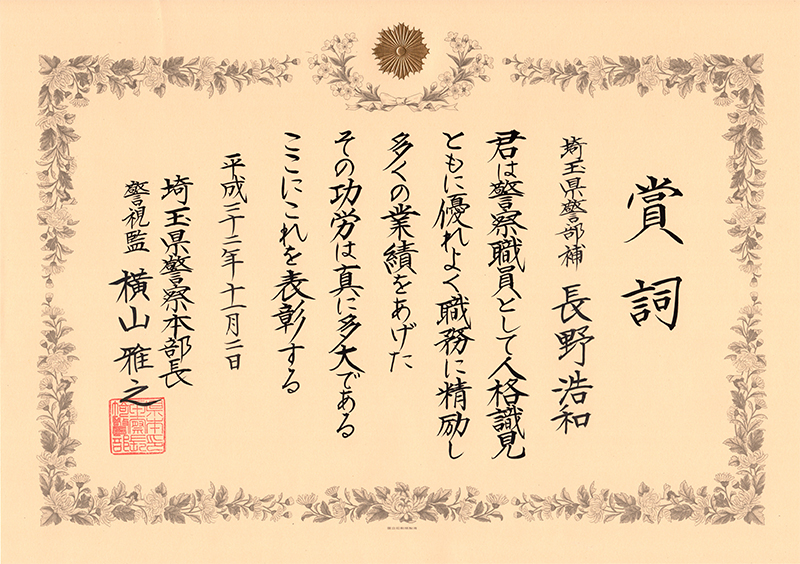 賞詞
埼玉県警部補 長野浩和
君は警察職員として人格識見
ともに優れよく職務に精励し
多くの業績をあげた
その功労は真に多大である
ここにこれを表彰する
平成二十二年十一月二日
埼玉県警察本部長
警視監 横山雅之